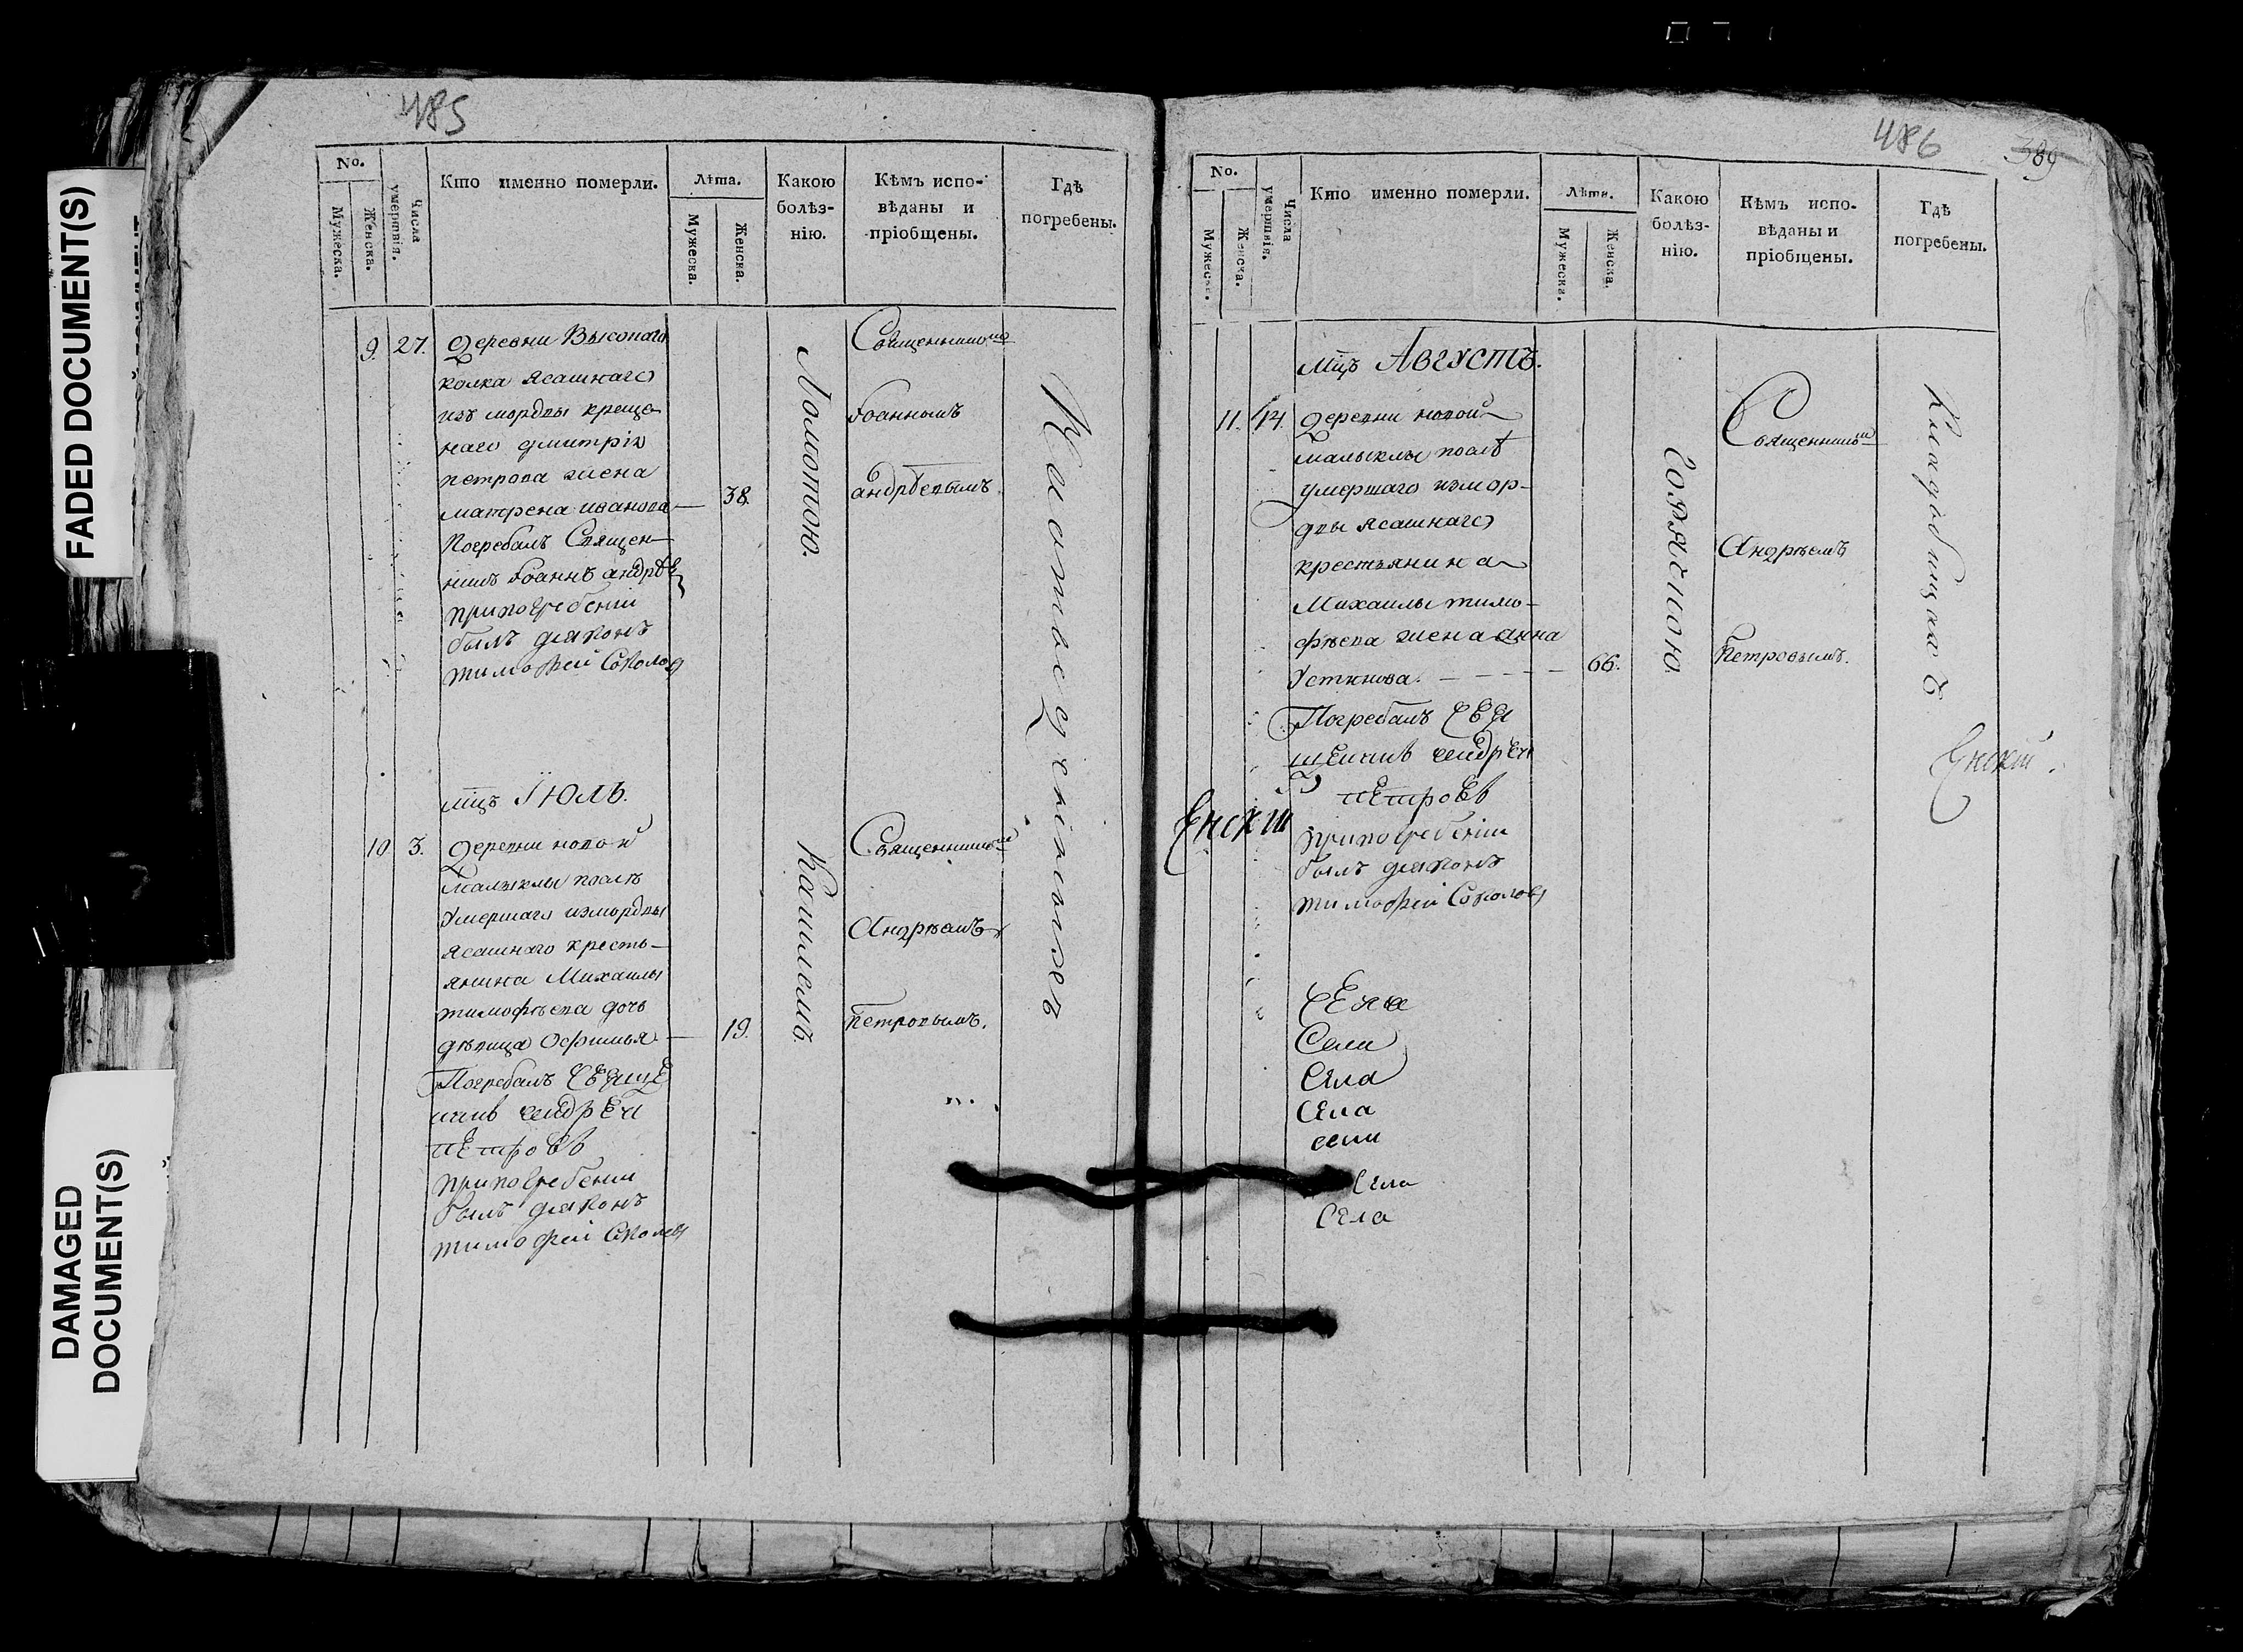 FADED DOCUMENT(S)
DAMAGED
DOCUMENT(S)
485
No.
Мужеска.
Женска.
Числа
умертвія.
Кто именно померли.
Лѣта.
Мужеска.
Женска.
Какою
болѣз-
нію.
Кѣмъ испо-
вѣданы и
пріобщены.
Гдѣ
погребены.
9. 27. Деревни Высокаго
колка ясашнаго
изъ мордвы креще-
наго дмитрія
петрова жена
матрена иванова — 38.
Погребалъ Священ-
никъ Іоаннъ андрѣе
припогребеніи
былъ дияконъ
тимофей Соколов
Ломотою.
Священникомъ
Іоанномъ
андрѣевымъ.
мцъ Іюль.
10 3. Деревни новой
малыклы послѣ
Умершаго измордвы
ясашнаго кресть-
янина Михаилы
тимофѣева дочь
дѣвица Офимья — 19.
Погребалъ Свяще
никъ андреи
петровъ
припогребеніи
былъ дияконъ
тимофей Соколов
Кашлемъ.
Священникомъ
Андрѣемъ
Петровымъ.
486
389
No.
Мужеска.
Женска.
Числа
умертвія.
Кто именно померли.
Лѣта.
Мужеска.
Женска.
Какою
болѣз-
нію.
Кѣмъ испо-
вѣданы и
пріобщены.
Гдѣ
погребены.
Мцъ Августъ.
11. 14. Деревни новой
малыклы послѣ
умершаго измор-
двы ясашнаго
крестьянина
Михаилы тимо-
фѣева жена анна
Устинова. — — — — 66.
Погребалъ Свя
щеникъ андреи
петровъ
припогребеніи
былъ дияконъ
тимофей Соколов
Священникомъ
Андрѣемъ
Петровымъ.
Кладбищахъ
Села
Сели
Села
Села
сели
Села
Села